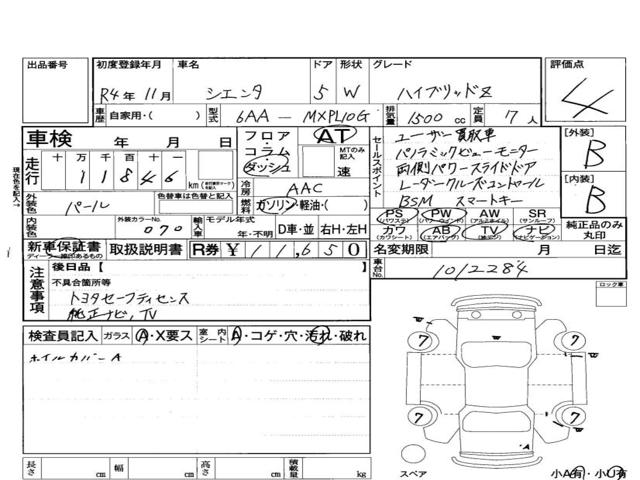 出品番号 初度登録年月 車名 ドア 形状 グレード 評価点
R4年11月 シエンタ 5 W ハイブリッドZ 4
車歴 自家用・( ) 型式 6AA — MXPL10G 排気量 1500cc 定員 7人
車検 年 月 日 フロア・コラム・ダッシュ AT セールスポイント ユーザー買取車 [外装] B
MTのみ記入 速 パノラミックビューモニター
現在色を記入→ 走行 十 万 千 百 十 一 両側パワースライドドア
1 1 8 4 6 km レーダークルーズコントロール [内装] B
外装色 パール 色替車は色替と記入 冷房 AAC BSM スマートキー
燃料 ガソリン・軽油・( ) PS (パワステ) PW (パワーウィンド) AW (アルミホイール) SR (サンルーフ) 純正品のみ丸印
内装色 外装カラーNo. 070 輸入車 モデル年式 年・不明 D車・並 右H・左H カワ (カワシート) AB (エアバッグ) TV ナビ (ナビゲーション)
新車保証書 ディーラー捺印あるもの 取扱説明書 R券 ¥11,650 名変期限 月 日迄
注意事項 後日品【 】 車台No. 1012284
不具合箇所等 ロック車
トヨタセーフティセンス
純正ナビ、TV
検査員記入 ガラス A・X要ス 室内シート A・コゲ・穴・汚れ・破れ
ホイルカバーA
W
7 7
W W
7 7
A
長さ cm 幅 cm 高さ cm 積載量 kg スペア 小A有・小U有